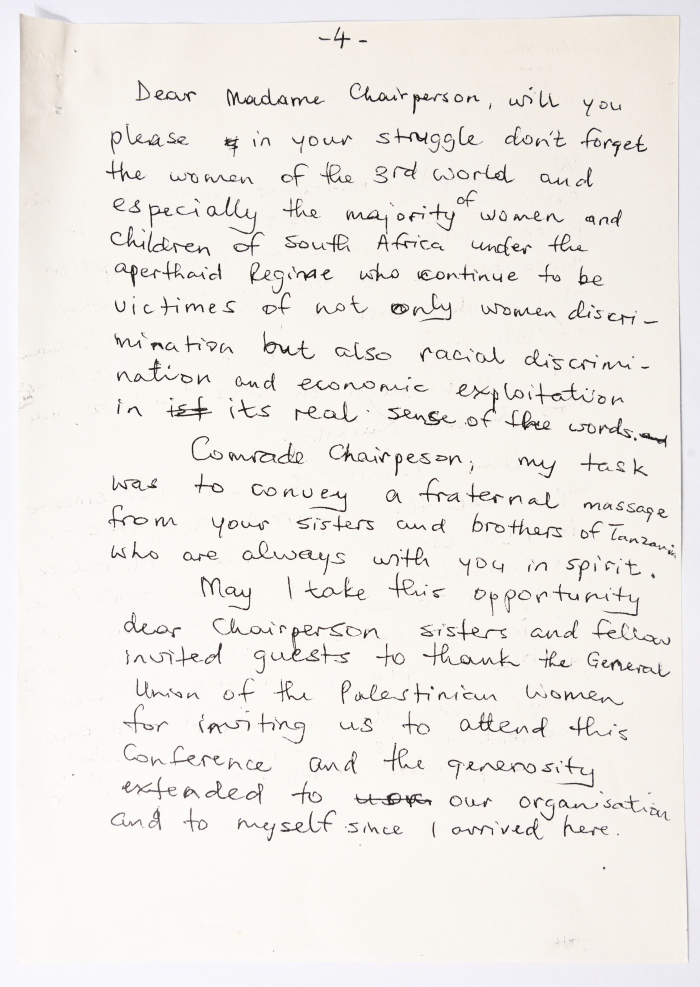 -4-
Dear Madame Chairperson, will you
please in your struggle don't forget
the women of the 3rd world and
especially the majority of women and
children of South Africa under the
aperthaid Regime who continue to be
victimes of not only women discri-
mination but also racial discrimi-
nation and economic exploitation
in its real sense of the words.
Comrade Chairpeson, my task
was to convey a fraternal massage
from your sisters and brothers of Tanzania
who are always with you in spirit.
May I take this opportunity
dear Chairperson sisters and fellow
invited guests to thank the General
Union of the Palestinian Women
for inviting us to attend this
Conference and the generosity
extended to our organisation
and to myself since I arrived here.